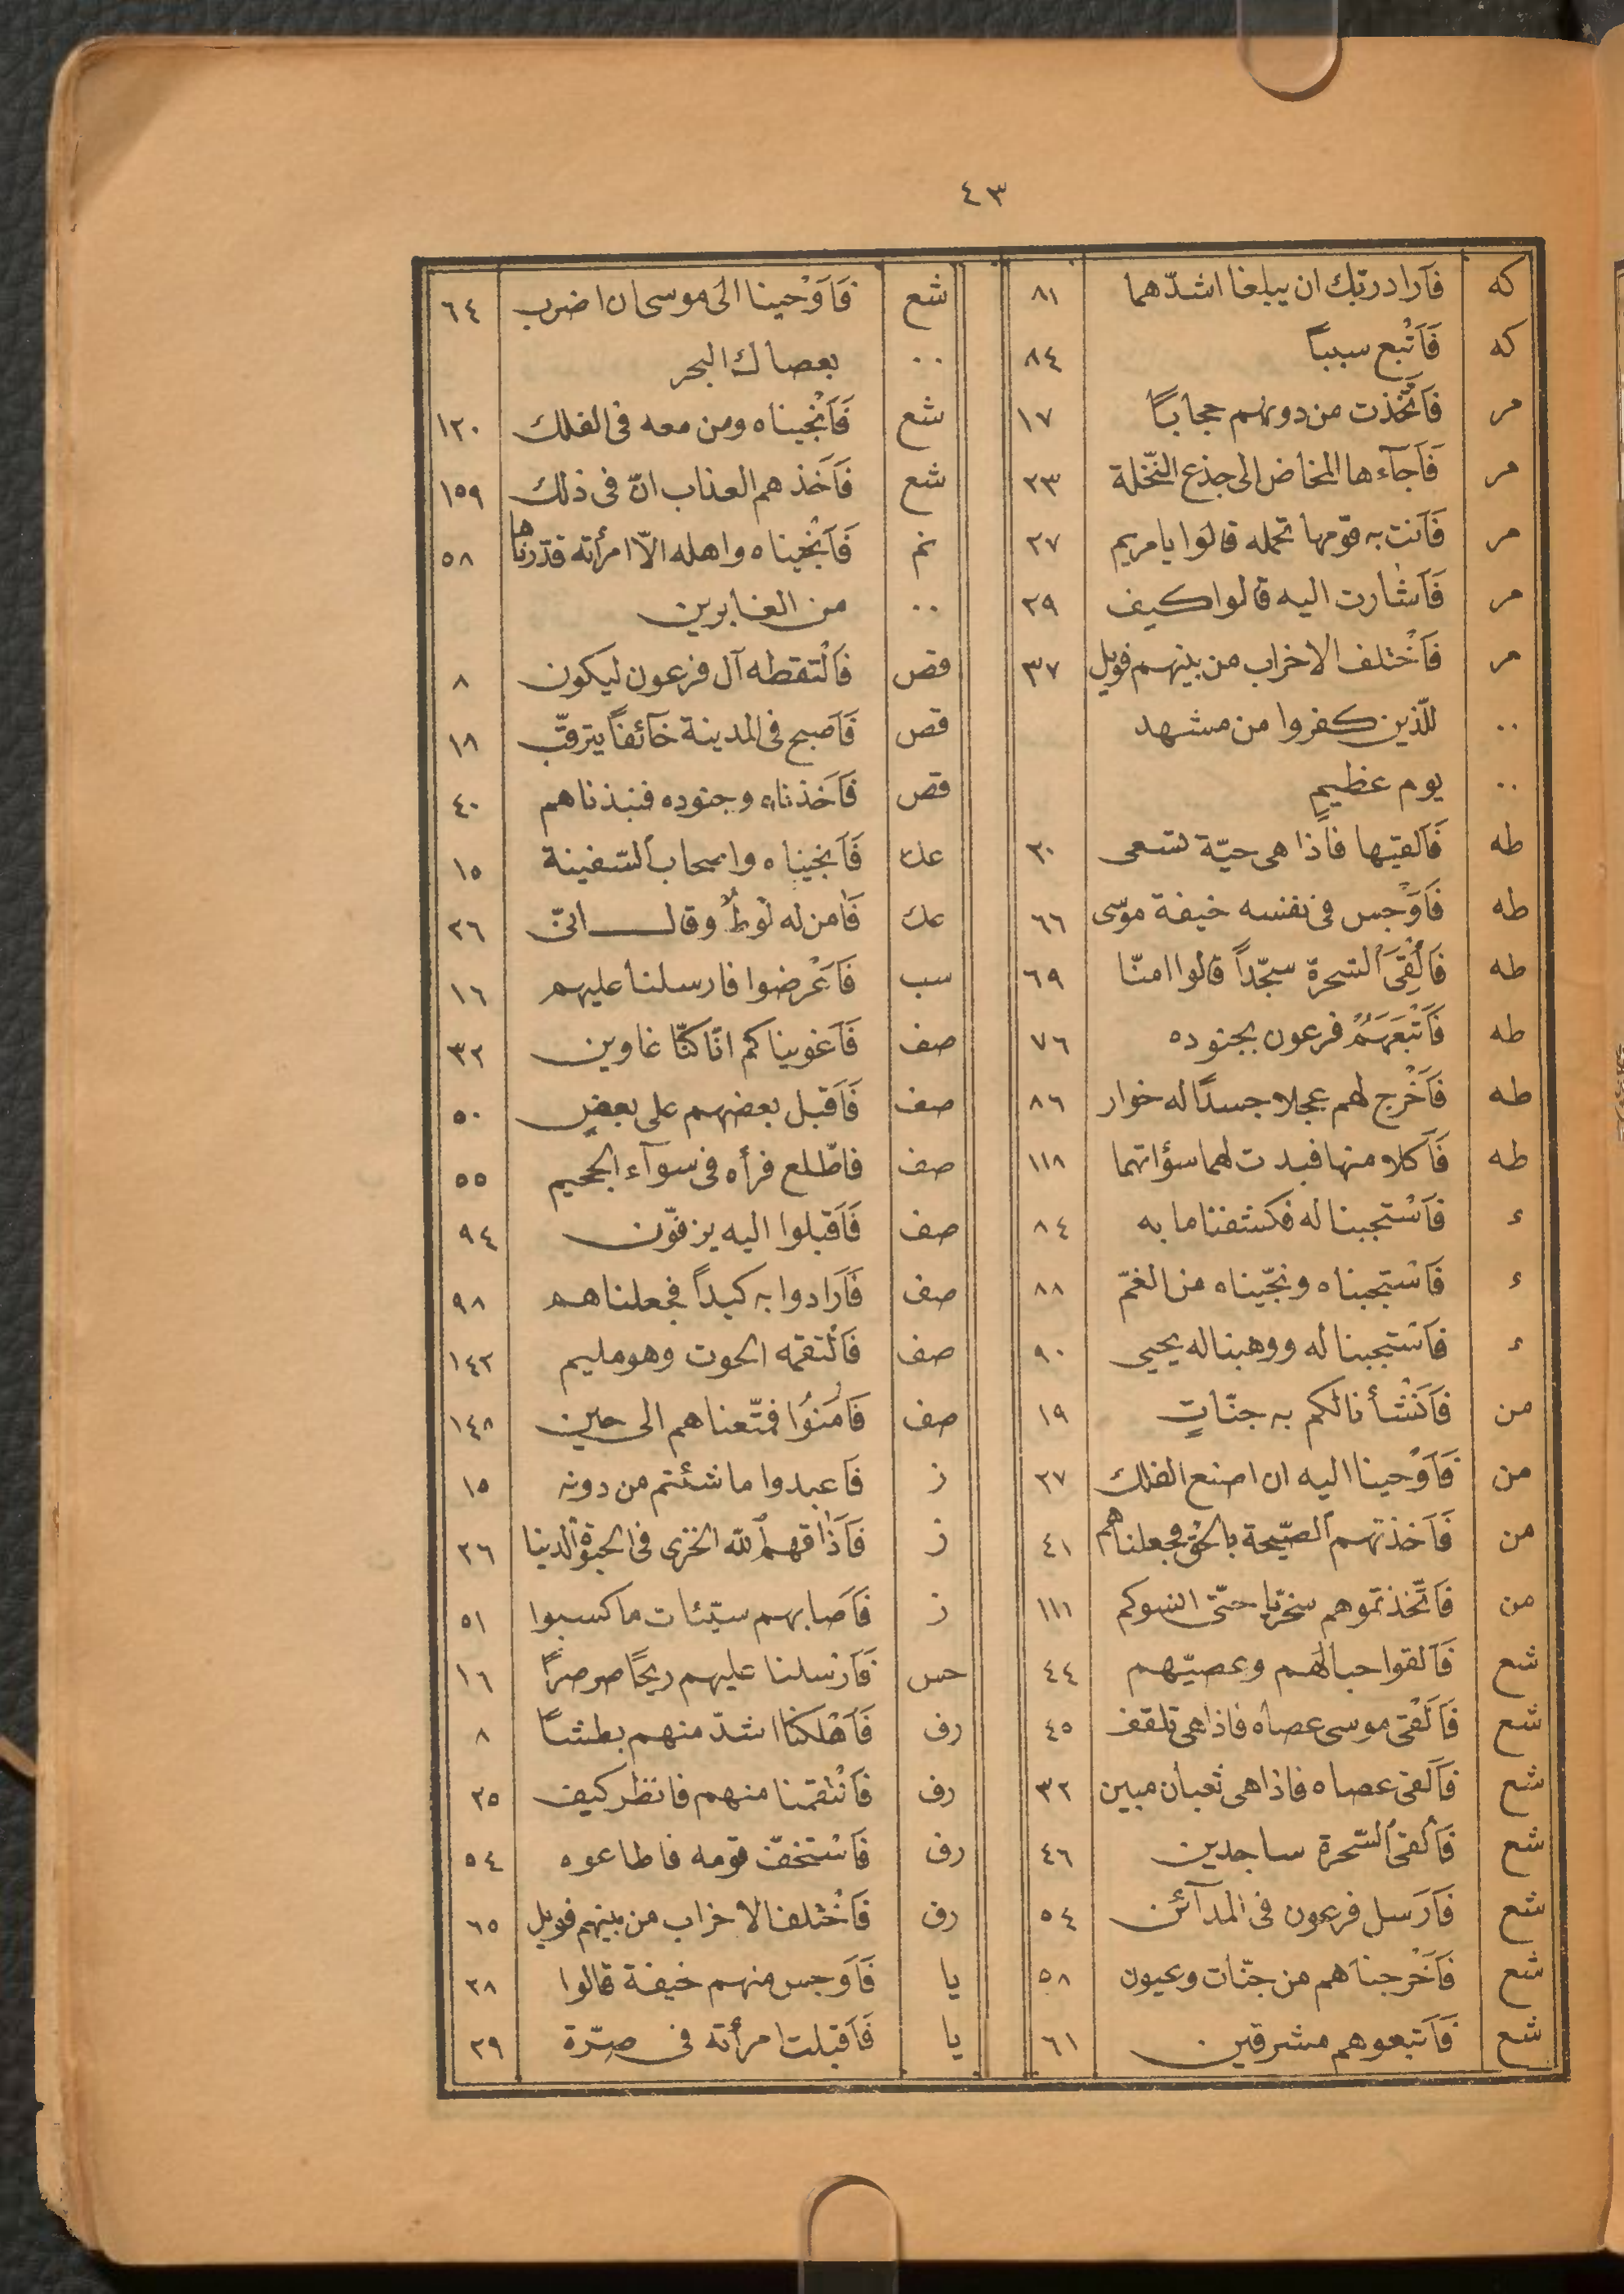 ٤٣
كه فَاَرادربّك ان يبلغا اشدّهما ٨١
كه فَاَتْبع سبباً ٨٤
مر فَاتّخذت من دونهم حجاباً ١٧
مر فَاَجآءها المخاض الى جذع النّخلة ٢٣
مر فَاَتت به قومها تحمله قالوا يامريم ٢٧
مر فَاَشارت اليه قالوا كيف ٢٩
مر فَاخْتلف الاحزاب من بينهم فويل ٣٧
.. للّذين كفروا من مشهد
.. يوم عظيمٍ
طه فَاَلقيها فاذا هى حيّة تسعى ٢٠
طه فَاَوْجس فى نفسه خيفة موسى ٦٦
طه فَاُلْقِىَ السّحرة سجّداً قالوا امنّا ٦٩
طه فَاَتْبَعَهُمْ فرعون بجنوده ٧٦
طه فَاَخْرج لهم عجلا جسدًا له خوار ٨٦
طه فَاَكلا منها فبدت لهما سؤاتهما ١١٨
ء فَاسْتجبنا له فكشفنا ما به ٨٤
ء فَاسْتجبناه ونجّيناه من الغمّ ٨٨
ء فَاسْتجبنا له ووهبنا له يحيى ٩٠
من فَاَنْشأنا لكم به جنّاتٍ ١٩
من فَاَوْحينا اليه ان اصنع الفلك ٢٧
من فَاَخذتهم الصّيحة بالحق فجعلناهم ٤١
من فَاتّخذتموهم سخريّا حتّى انسوكم ١١١
شع فَاَلقوا حبالهم وعصيّهم ٤٤
شع فَاَلْقى موسى عصاه فاذا هى تلقف ٤٥
شع فَاَلقى عصاه فاذا هى ثعبان مبين ٣٢
شع فَاُلقى السّحرة ساجدين ٤٦
شع فَاَرسل فرعون فى المدآئن ٥٤
شع فَاَخْرجناهم من جنّات وعيون ٥٨
شع فَاَتبعوهم مشرقين ٦١
شع فَاَوْحينا الى موسى ان اضرب ٦٤
.. بعصاك البحر
شع فَاَنْجيناه ومن معه فى الفلك ١٢٠
شع فَاَخذهم العذاب انّ فى ذلك ١٥٩
نم فَاَنْجيناه واهله الّا امرأته قدّرناها ٥٨
.. من الغابرين
قص فَالْتقطه آل فرعون ليكون ٨
قص فَاَصبح فى المدينة خآئفاً يترقّب ١٨
قص فَاَخذناه وجنوده فنبذناهم ٤٠
عك فَاَنجيناه واصحاب السّفينة ١٥
عك فَامن له لوطٌ وقال انّى ٢٦
سب فَاَعْرضوا فارسلنا عليهم ١٦
صف فَاَغويناكم انّا كنّا غاوين ٣٢
صف فَاَقبل بعضهم على بعضٍ ٥٠
صف فاطّلع فرأه فى سوآء الجحيم ٥٥
صف فَاَقبلوا اليه يزفّون ٩٤
صف فَاَرادوا به كيداً فجعلناهم ٩٨
صف فَالْتقمه الحوت وهو مليم ١٤٢
صف فَامَنُوا فمتّعناهم الى حين ١٤٨
ز فَاعبدوا ما شئتم من دونه ١٥
ز فَاَذاقهم اللّه الخزى فى الحيوة الدنيا ٢٦
ز فَاَصابهم سيّئات ما كسبوا ٥١
حس فَاَرْسلنا عليهم ريحًا صرصرًا ١٦
رف فَاَهْلكنا اشدّ منهم بطشاً ٨
رف فَانْتقمنا منهم فانظر كيف ٢٥
رف فَاسْتخفّ قومه فاطاعوه ٥٤
رف فَاخْتلف الاحزاب من بينهم فويل ٦٥
يا فَاَوجس منهم خيفة قالوا ٢٨
يا فَاَقبلت امرأته فى صرّة ٢٩